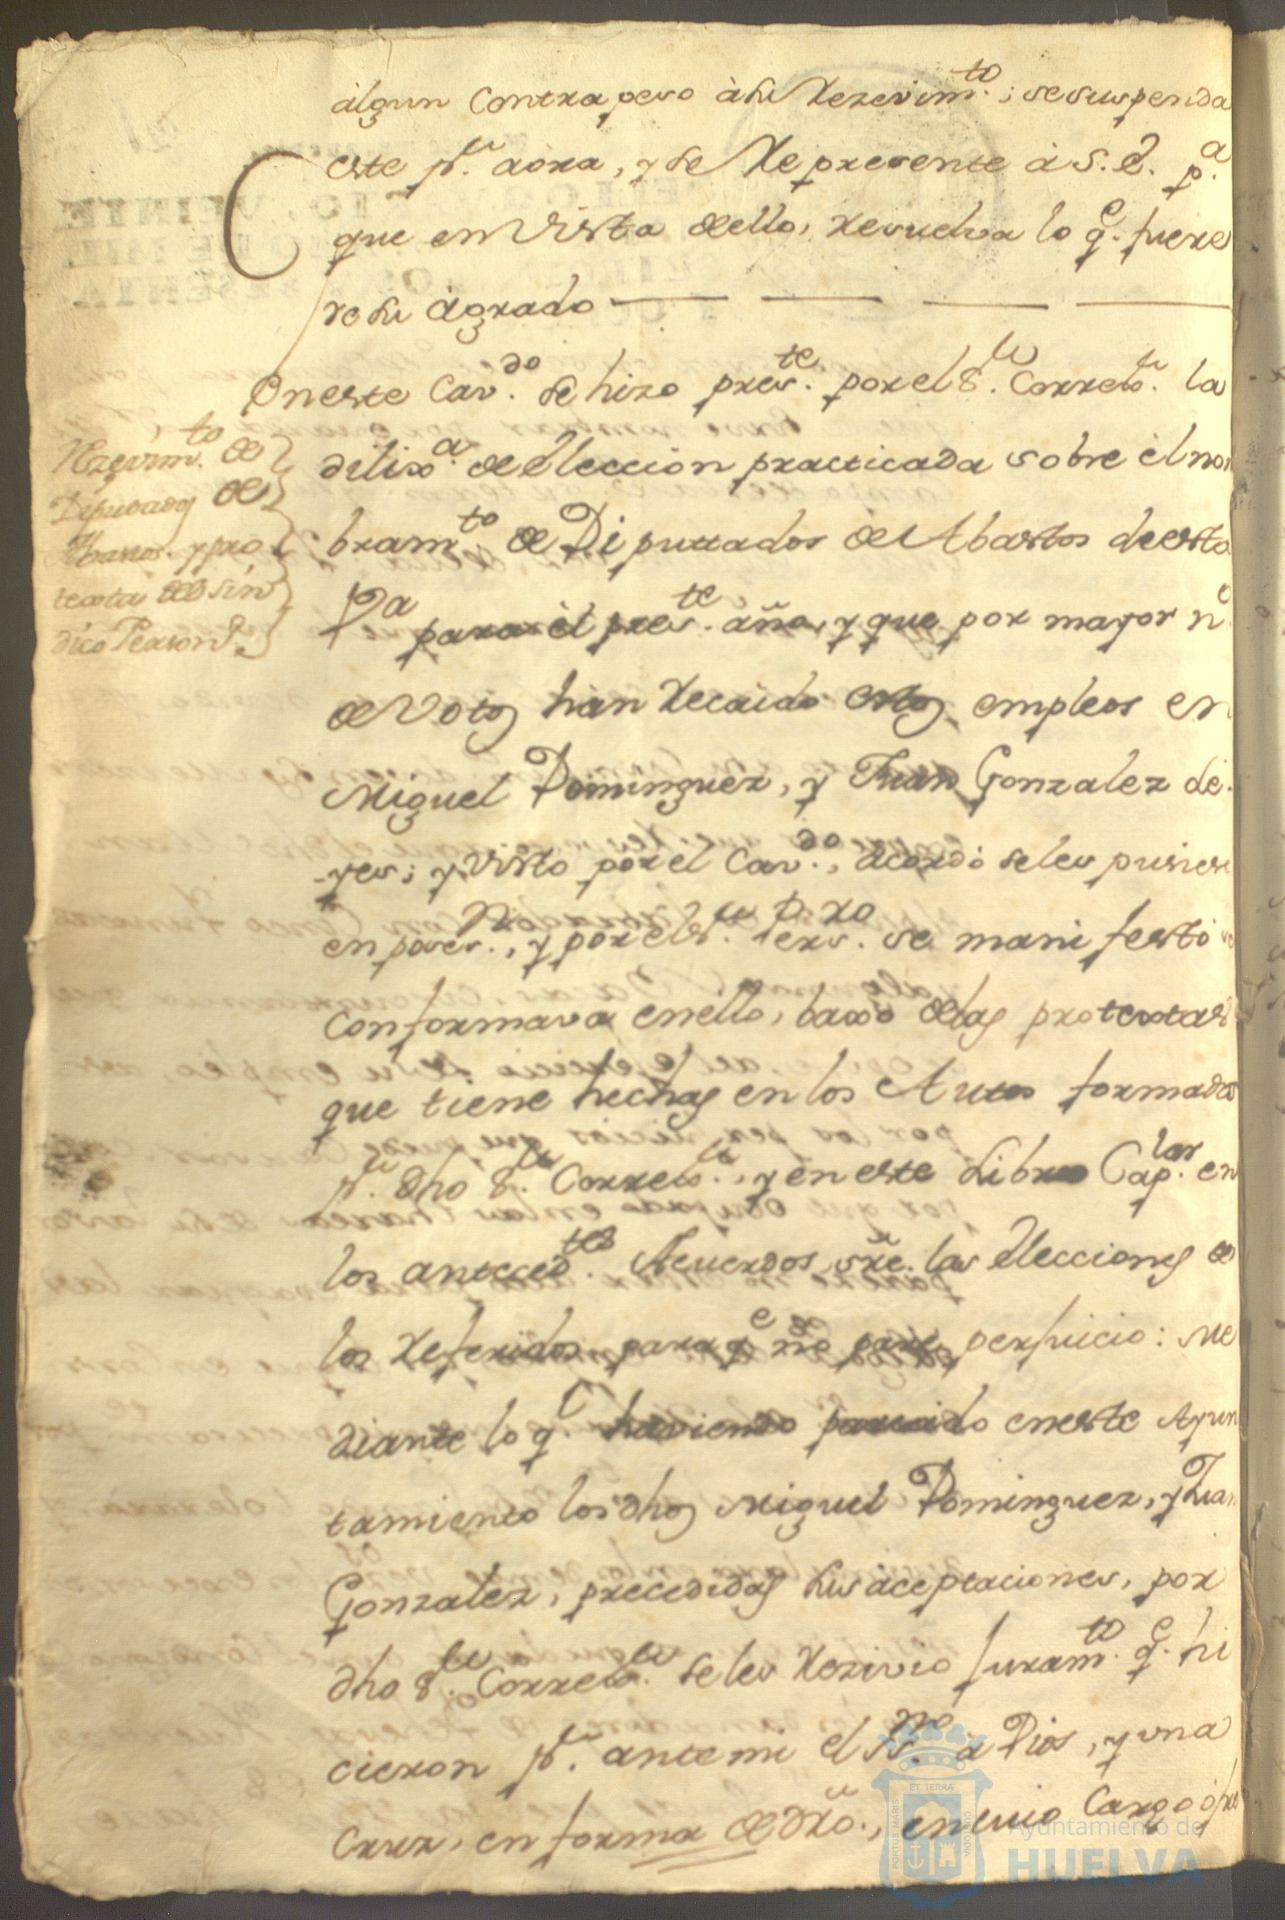 algun contra peso à su Rezevim.to; se suspenda
este p.r aora, y se Represente à S. E. p.a
que en vista de ello, resuelva lo q.e fuere
de su àgrado
En este Cav.do se hizo pres.te por el S.r Correx.r la
dilix.a de Eleccion practicada sobre èl nom
bram.to de Diputtados de Abastos de esta
V.a para èl pres.te año, y que por mayor n.o
de Votos han Recaido estos empleos en
Miguel Dominguez, y Juan Gonzalez de
yes; y visto por el Cav.do, acordò se les pusiese
en poses.n, y por el S.r Pers.ro se manifestò
conformava en ello, baxo de las protextas
que tiene hechas en los Autos formados
p.r dho S.r Correx.r, y en este Libro Cap.lar en
los anteced.tes Acuerdos, sre. las Elecciones de
los Referidos para q.e no pare perjuicio: Me
diante lo q.e haviendo parecido en este Ayun
tamiento los dhos Miguel Dominguez, y Juan
Gonzalez, precedidas sus aceptaciones, por
dho S.r Correx.r se les Rezivio juram.to q.e hi
cieron p.r ante mi el Ss.no à Dios, y una
Cruz, en forma de dro., en cuio Cargo
Rezevim.to de
Diputados de
Abastos y pro
texta del Sin
dico Person.o
Ayuntamiento de
HUELVA